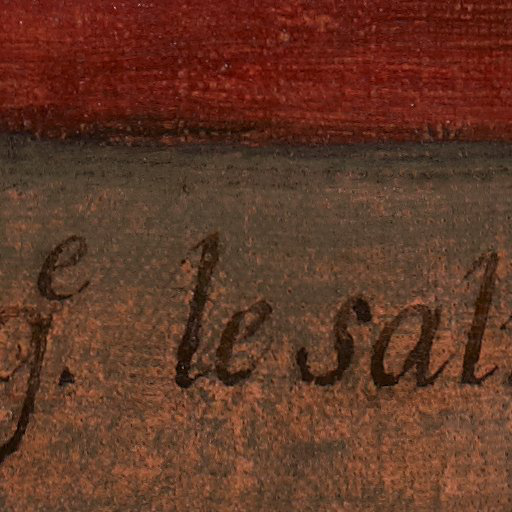 g.ᵉ le sal